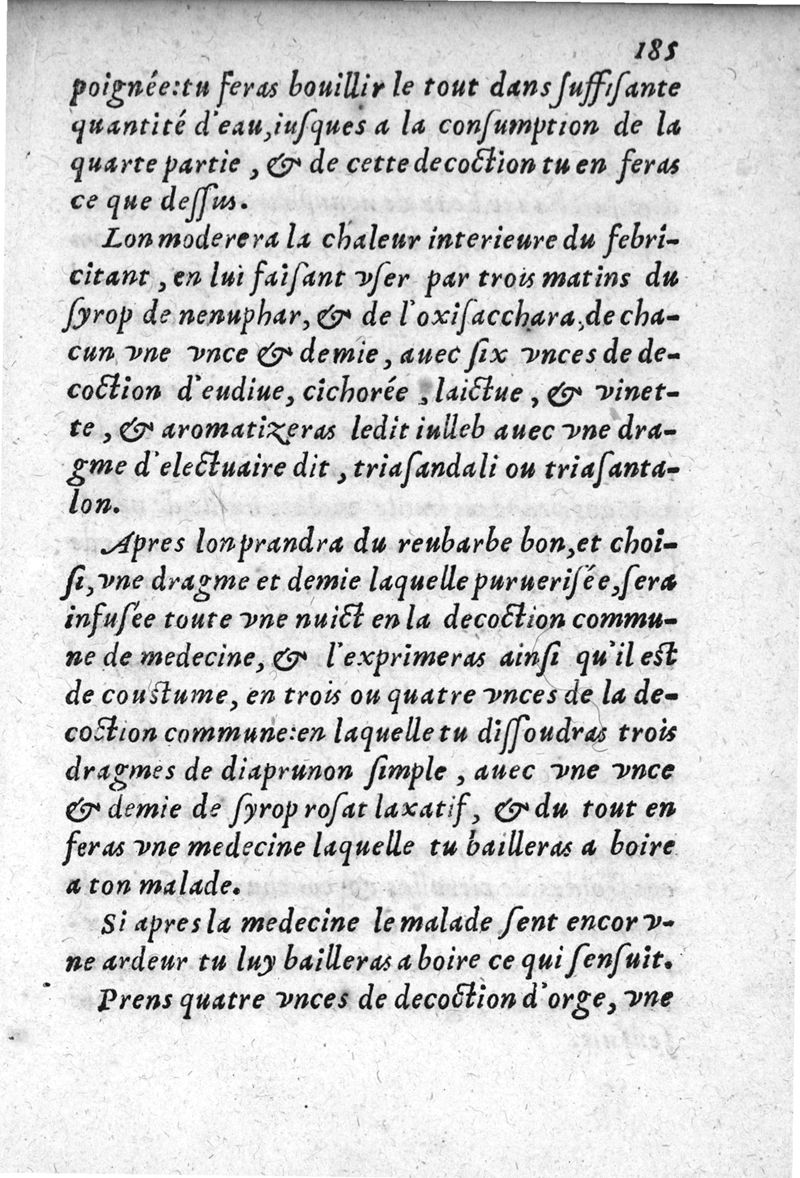 185
poignée:tu feras bouillir le tout dans ſuffiſante
quantité d'eau,iuſques a la conſumption de la
quarte partie , & de cette decoction tu en feras
ce que deſſus.
Lon moderera la chaleur interieure du febri-
citant , en lui faiſant vſer par trois matins du
ſyrop de nenuphar, & de l'oxiſacchara,de cha-
cun vne vnce & demie, auec ſix vnces de de-
coction d'eudiue, cichorée , laictue , & vinet-
te , & aromatizeras ledit iulleb auec vne dra-
gme d'electuaire dit , triaſandali ou triaſanta-
lon.
Apres lon prandra du reubarbe bon,et choi-
ſi,vne dragme et demie laquelle purueriſée,ſera
infuſée toute vne nuict en la decoction commu-
ne de medecine, & l'exprimeras ainſi qu'il eſt
de couſtume, en trois ou quatre vnces de la de-
coction commune:en laquelle tu diſſoudras trois
dragmes de diaprunon ſimple , auec vne vnce
& demie de ſyrop roſat laxatif, & du tout en
feras vne medecine laquelle tu bailleras a boire
a ton malade.
Si apres la medecine le malade ſent encor v-
ne ardeur tu luy bailleras a boire ce qui ſenſuit.
Prens quatre vnces de decoction d'orge, vne